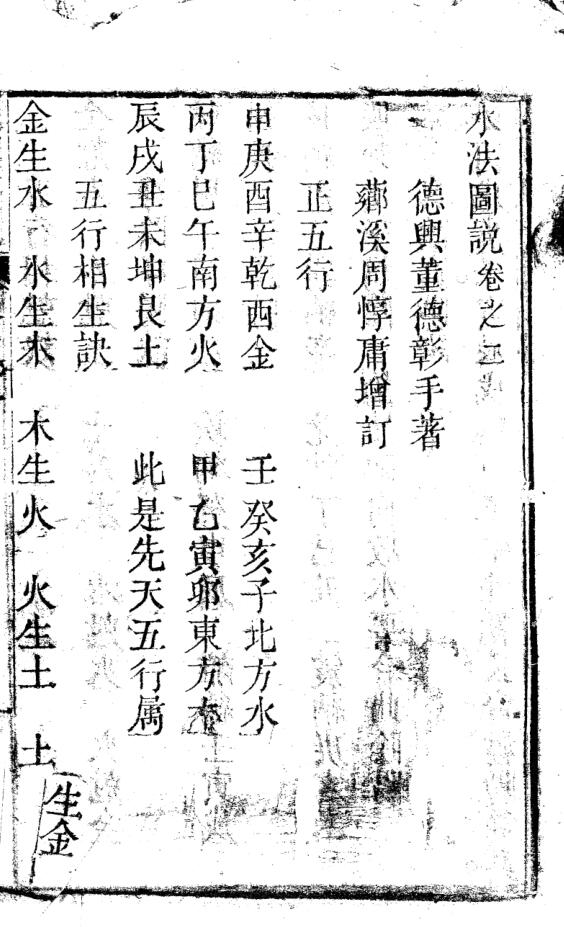 水法圖説卷之
德興董德彰手著
薌溪周惇庸增訂
正五行
申庚酉辛乾西金 壬癸亥子北方水
丙丁巳午南方火 甲乙寅卯東方木
辰戌丑未坤艮土 此是先天五行属
五行相生訣
金生水 水生木 木生火 火生土 土
生金